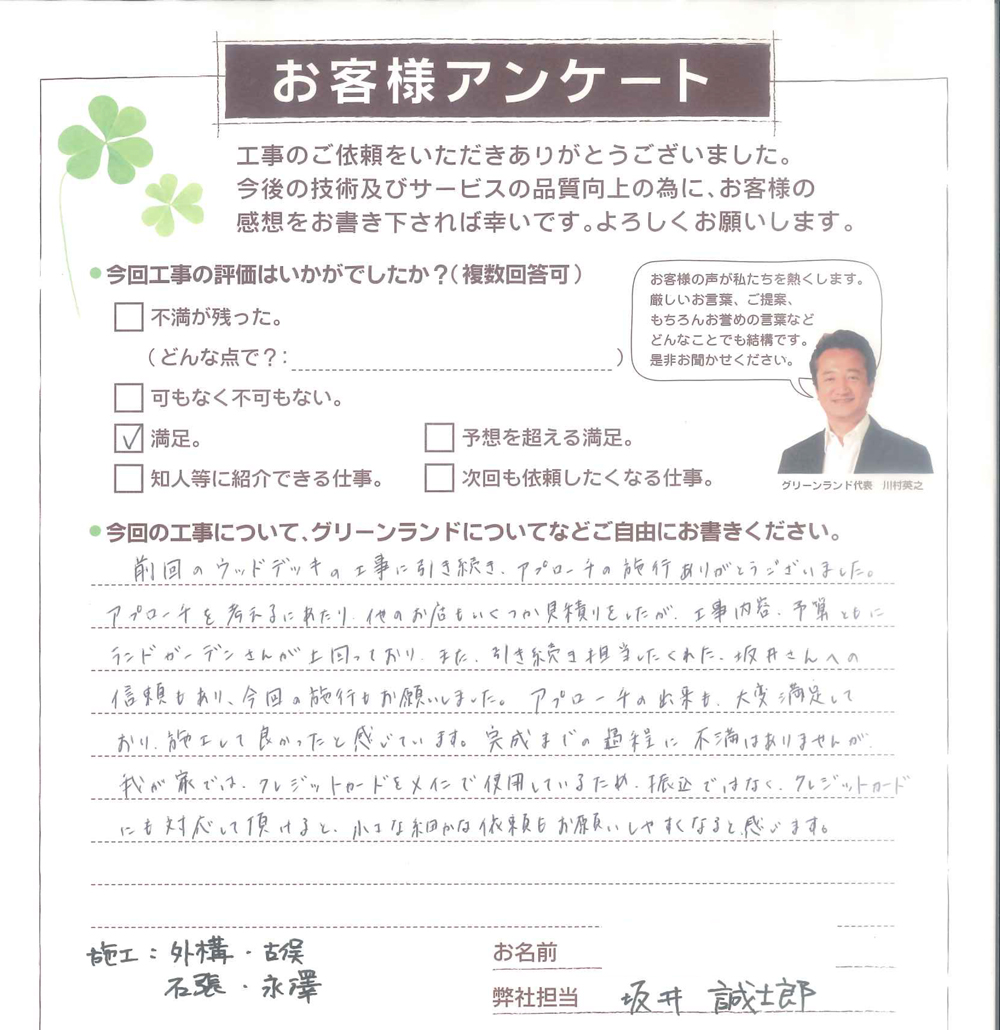 お客様アンケート
工事のご依頼をいただきありがとうございました。
今後の技術及びサービスの品質向上の為に、お客様の
感想をお書き下されば幸いです。よろしくお願いします。
●今回工事の評価はいかがでしたか？(複数回答可)
不満が残った。
(どんな点で？: )
可もなく不可もない。
✓ 満足。
予想を超える満足。
知人等に紹介できる仕事。
次回も依頼したくなる仕事。
お客様の声が私たちを熱くします。
厳しいお言葉、ご提案、
もちろんお誉めの言葉など
どんなことでも結構です。
是非お聞かせください。
グリーンランド代表 川村英之
●今回の工事について、グリーンランドについてなどご自由にお書きください。
前回のウッドデッキの工事に引き続き、アプローチの施行ありがとうございました。
アプローチを考えるにあたり、他のお店もいくつか見積りをしたが、工事内容、予算ともに
ランドガーデンさんが上回っており、また、引き続き担当したくれた、坂井さんへの
信頼もあり、今回の施行もお願いしました。アプローチの出来も、大変満足して
おり、施工して良かったと感じています。完成までの過程に不満はありませんが、
我が家では、クレジットカードをメインで使用しているため、振込ではなく、クレジットカード
にも対応して頂けると、小さな細かな依頼もお願いしやすくなると感じます。
施工：外構・古俣
石張・永澤
お名前
弊社担当 坂井 誠士郎